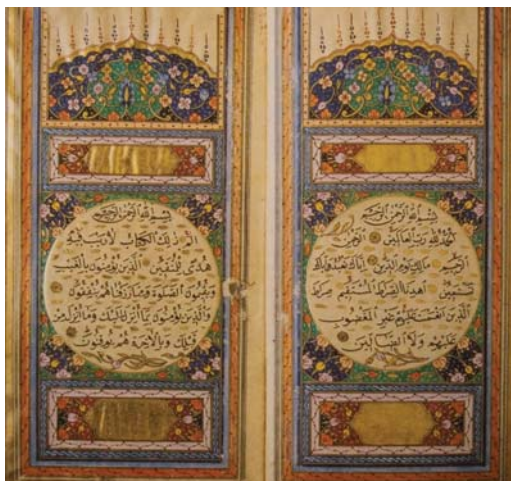 بِسْمِ اللهِ الرَّحْمٰنِ الرَّحِيمِ
اَلْحَمْدُ لِلّٰهِ رَبِّ الْعَالَمِينَ اَلرَّحْمٰنِ
الرَّحِيمِ مَالِكِ يَوْمِ الدِّينِ اِيَّاكَ نَعْبُدُ وَاِيَّاكَ
نَسْتَعِينُ اِهْدِنَا الصِّرَاطَ الْمُسْتَقِيمَ صِرَاطَ
الَّذِينَ اَنْعَمْتَ عَلَيْهِمْ غَيْرِ الْمَغْضُوبِ
عَلَيْهِمْ وَلَا الضَّالِّينَ
بِسْمِ اللهِ الرَّحْمٰنِ الرَّحِيمِ
الٓمٓ ذٰلِكَ الْكِتَابُ لَا رَيْبَ فِيهِ
هُدًى لِلْمُتَّقِينَ اَلَّذِينَ يُؤْمِنُونَ بِالْغَيْبِ
وَيُقِيمُونَ الصَّلٰوةَ وَمِمَّا رَزَقْنَاهُمْ يُنْفِقُونَ
وَالَّذِينَ يُؤْمِنُونَ بِمَا اُنْزِلَ اِلَيْكَ وَمَا اُنْزِلَ مِنْ
قَبْلِكَ وَبِالْاٰخِرَةِ هُمْ يُوقِنُونَ